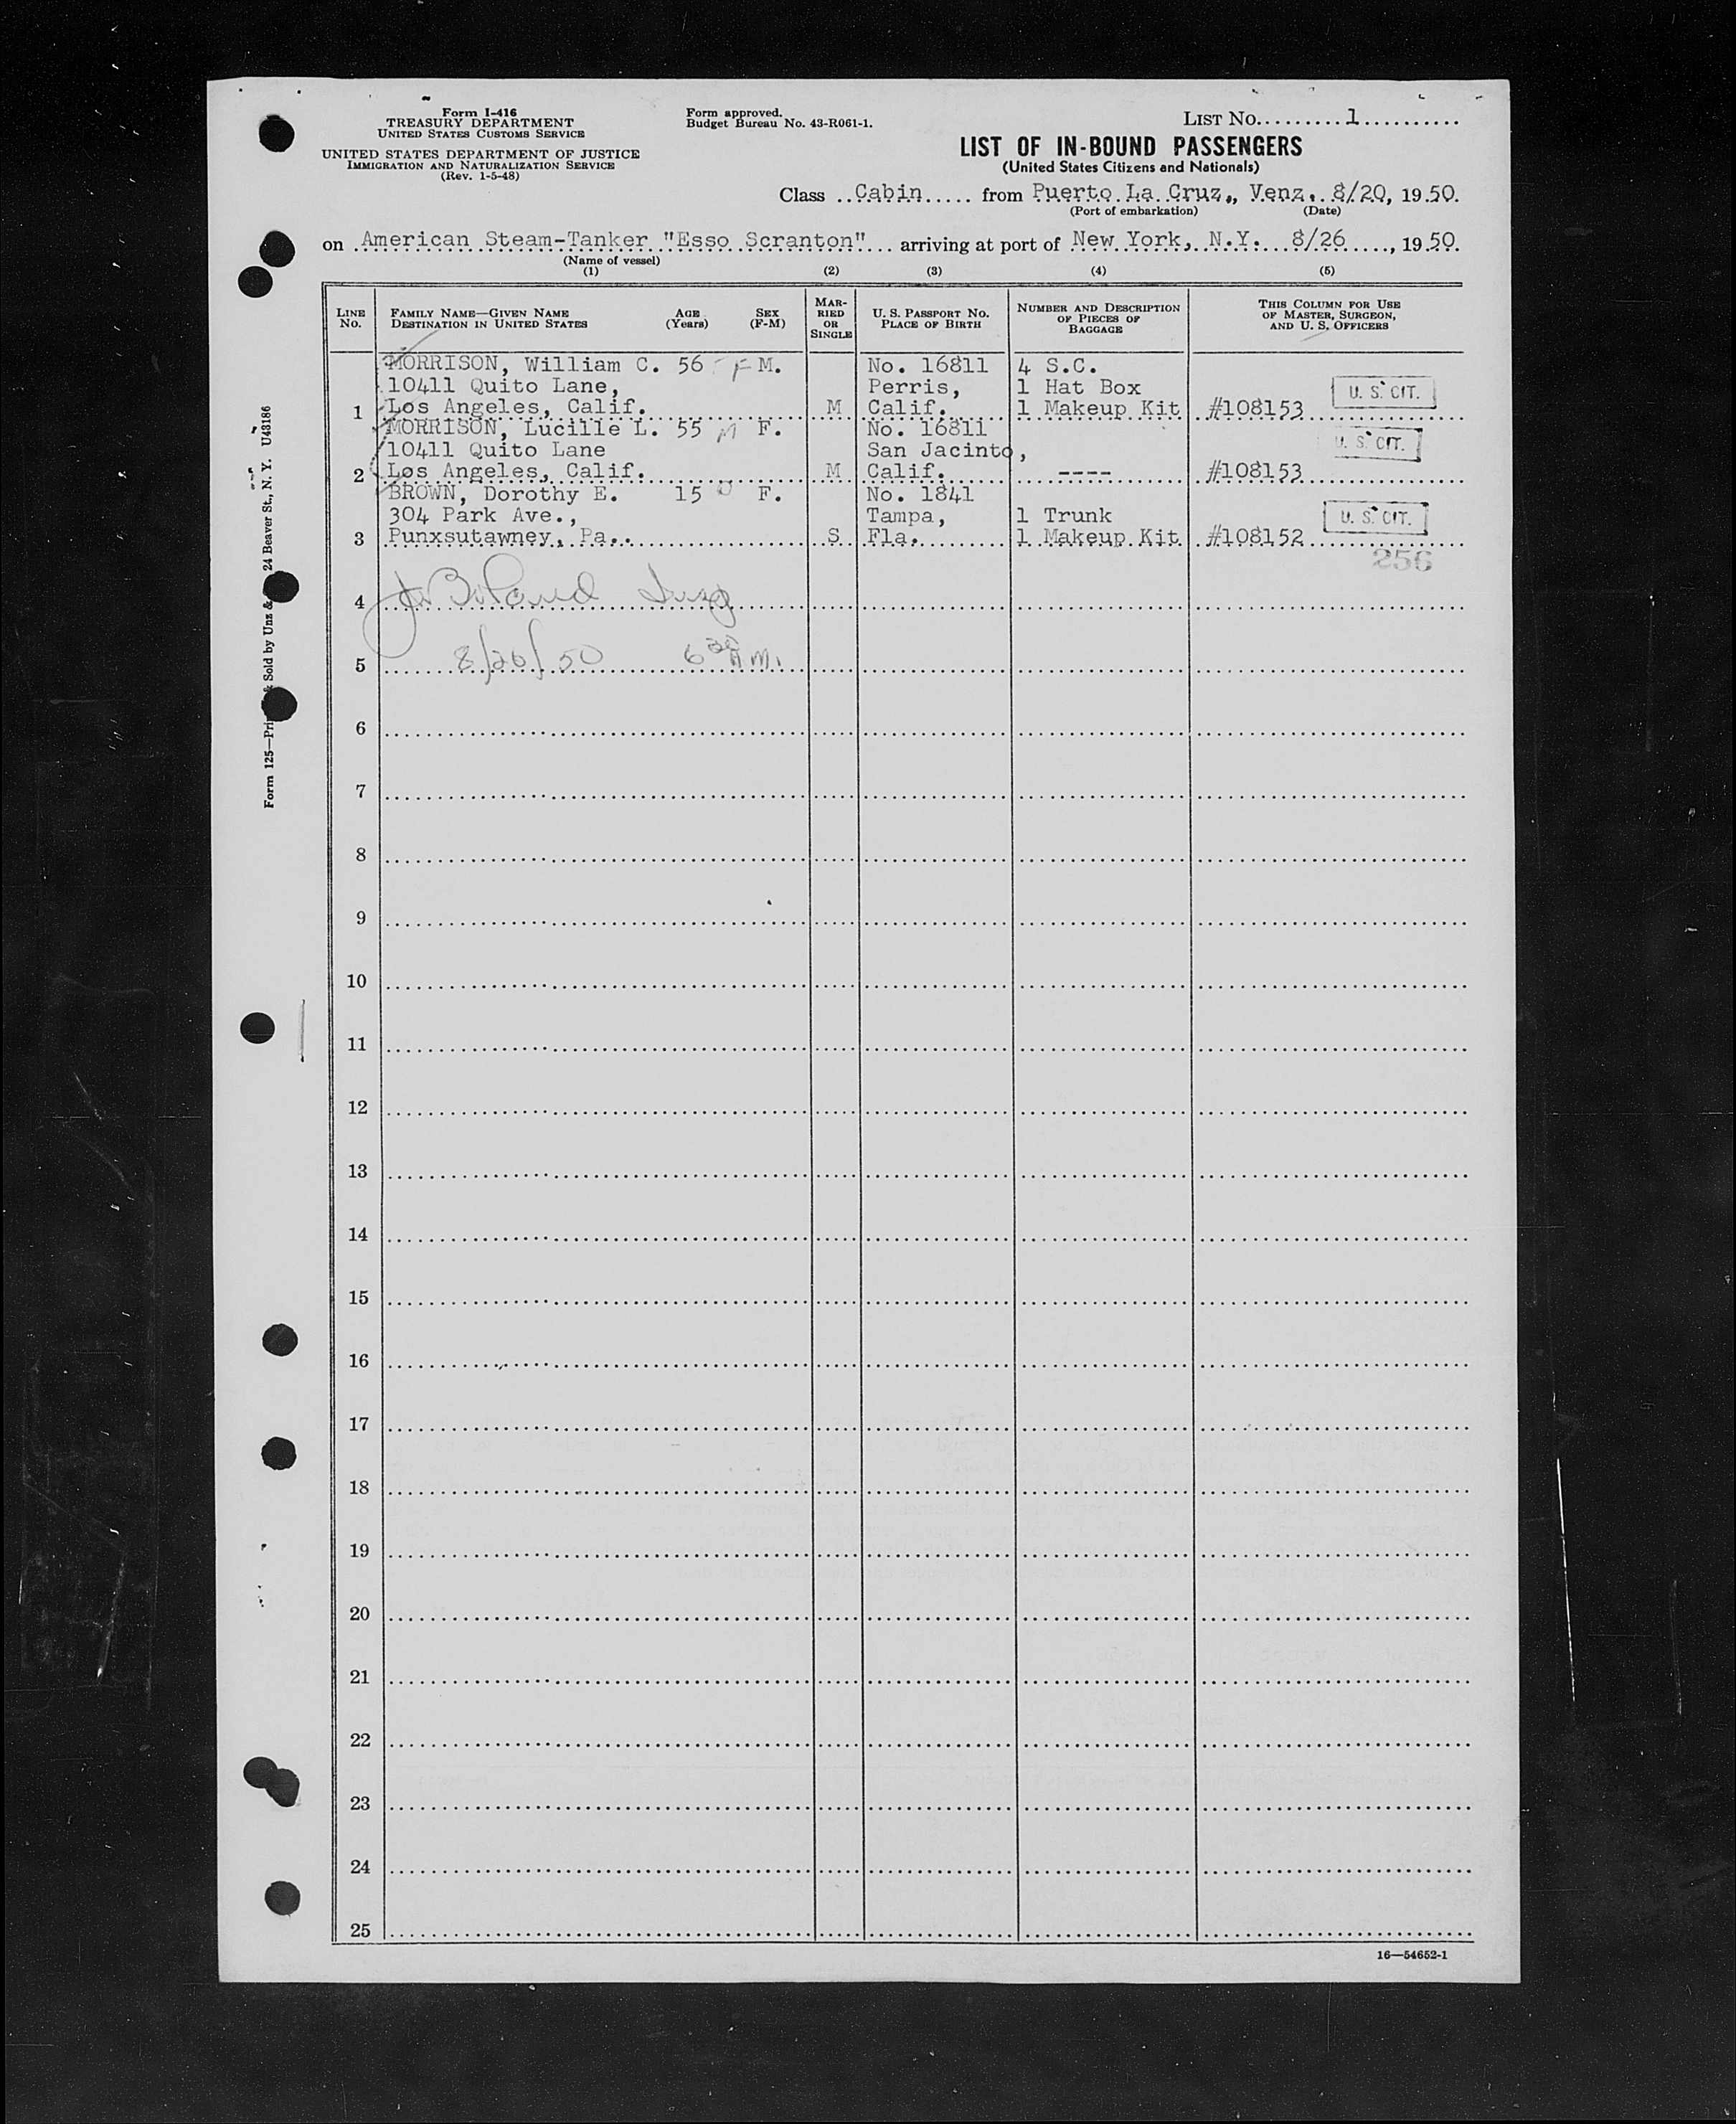 Form I-416
TREASURY DEPARTMENT
UNITED STATES CUSTOMS SERVICE
UNITED STATES DEPARTMENT OF JUSTICE
IMMIGRATION AND NATURALIZATION SERVICE
(Rev. 1-5-48)
Form approved.
Budget Bureau No. 43-R061-1.
LIST No. 1
LIST OF IN-BOUND PASSENGERS
(United States Citizens and Nationals)
Class Cabin from Puerto La Cruz, Venz. 8/20, 1950.
(Port of embarkation) (Date)
on American Steam-Tanker "Esso Scranton" arriving at port of New York, N.Y. 8/26, 1950.
(Name of vessel)
(1) (2) (3) (4) (5)
LINE No. FAMILY NAME—GIVEN NAME DESTINATION IN UNITED STATES AGE (Years) SEX (F-M) MARRIED OR SINGLE U. S. PASSPORT No. PLACE OF BIRTH NUMBER AND DESCRIPTION OF PIECES OF BAGGAGE THIS COLUMN FOR USE OF MASTER, SURGEON, AND U. S. OFFICERS
MORRISON, William C. 56 F M. No. 16811 4 S.C.
10411 Quito Lane, Perris, 1 Hat Box U. S. CIT.
1 Los Angeles, Calif. M Calif. 1 Makeup Kit #108153
MORRISON, Lucille L. 55 M F. No. 16811
10411 Quito Lane San Jacinto, U. S. CIT.
2 Los Angeles, Calif. M Calif. ---- #108153
BROWN, Dorothy E. 15 F. No. 1841
304 Park Ave., Tampa, 1 Trunk U. S. CIT.
3 Punxsutawney, Pa.. S Fla. 1 Makeup Kit #108152
256
4
5 8/26/50 6 30 A.m.
6
7
8
9
10
11
12
13
14
15
16
17
18
19
20
21
22
23
24
25
16—54652-1
Form 125—Pri & Sold by Unz & 24 Beaver St., N. Y. U43186